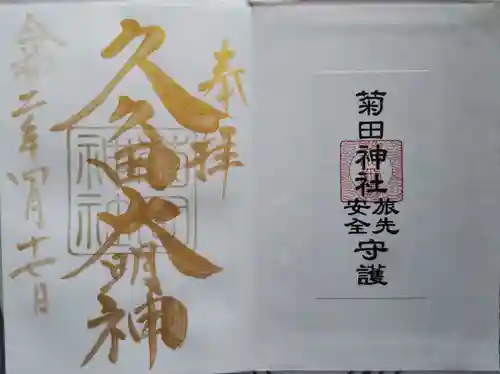 奉拝
久久田大明神
令和二年四月十七日
菊田神社
旅先
安全
守護